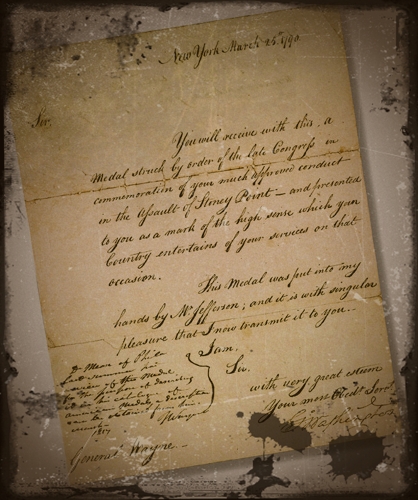 New York March 25th 1790
Sir.
You will receive with this, a
Medal struck by order of the late Congress in
commemoration of your much approved conduct
in the Assault of Stoney Point — and presented
to you as a mark of the high sense which your
Country entertains of your services on that
occasion.
This Medal was put into my
hands by Mr. Jefferson; and it is with singular
pleasure that I now transmit it to you. —
I am,
Sir,
with very great esteem
Your most Obedt. Servt.
G. Washington
General Wayne. —